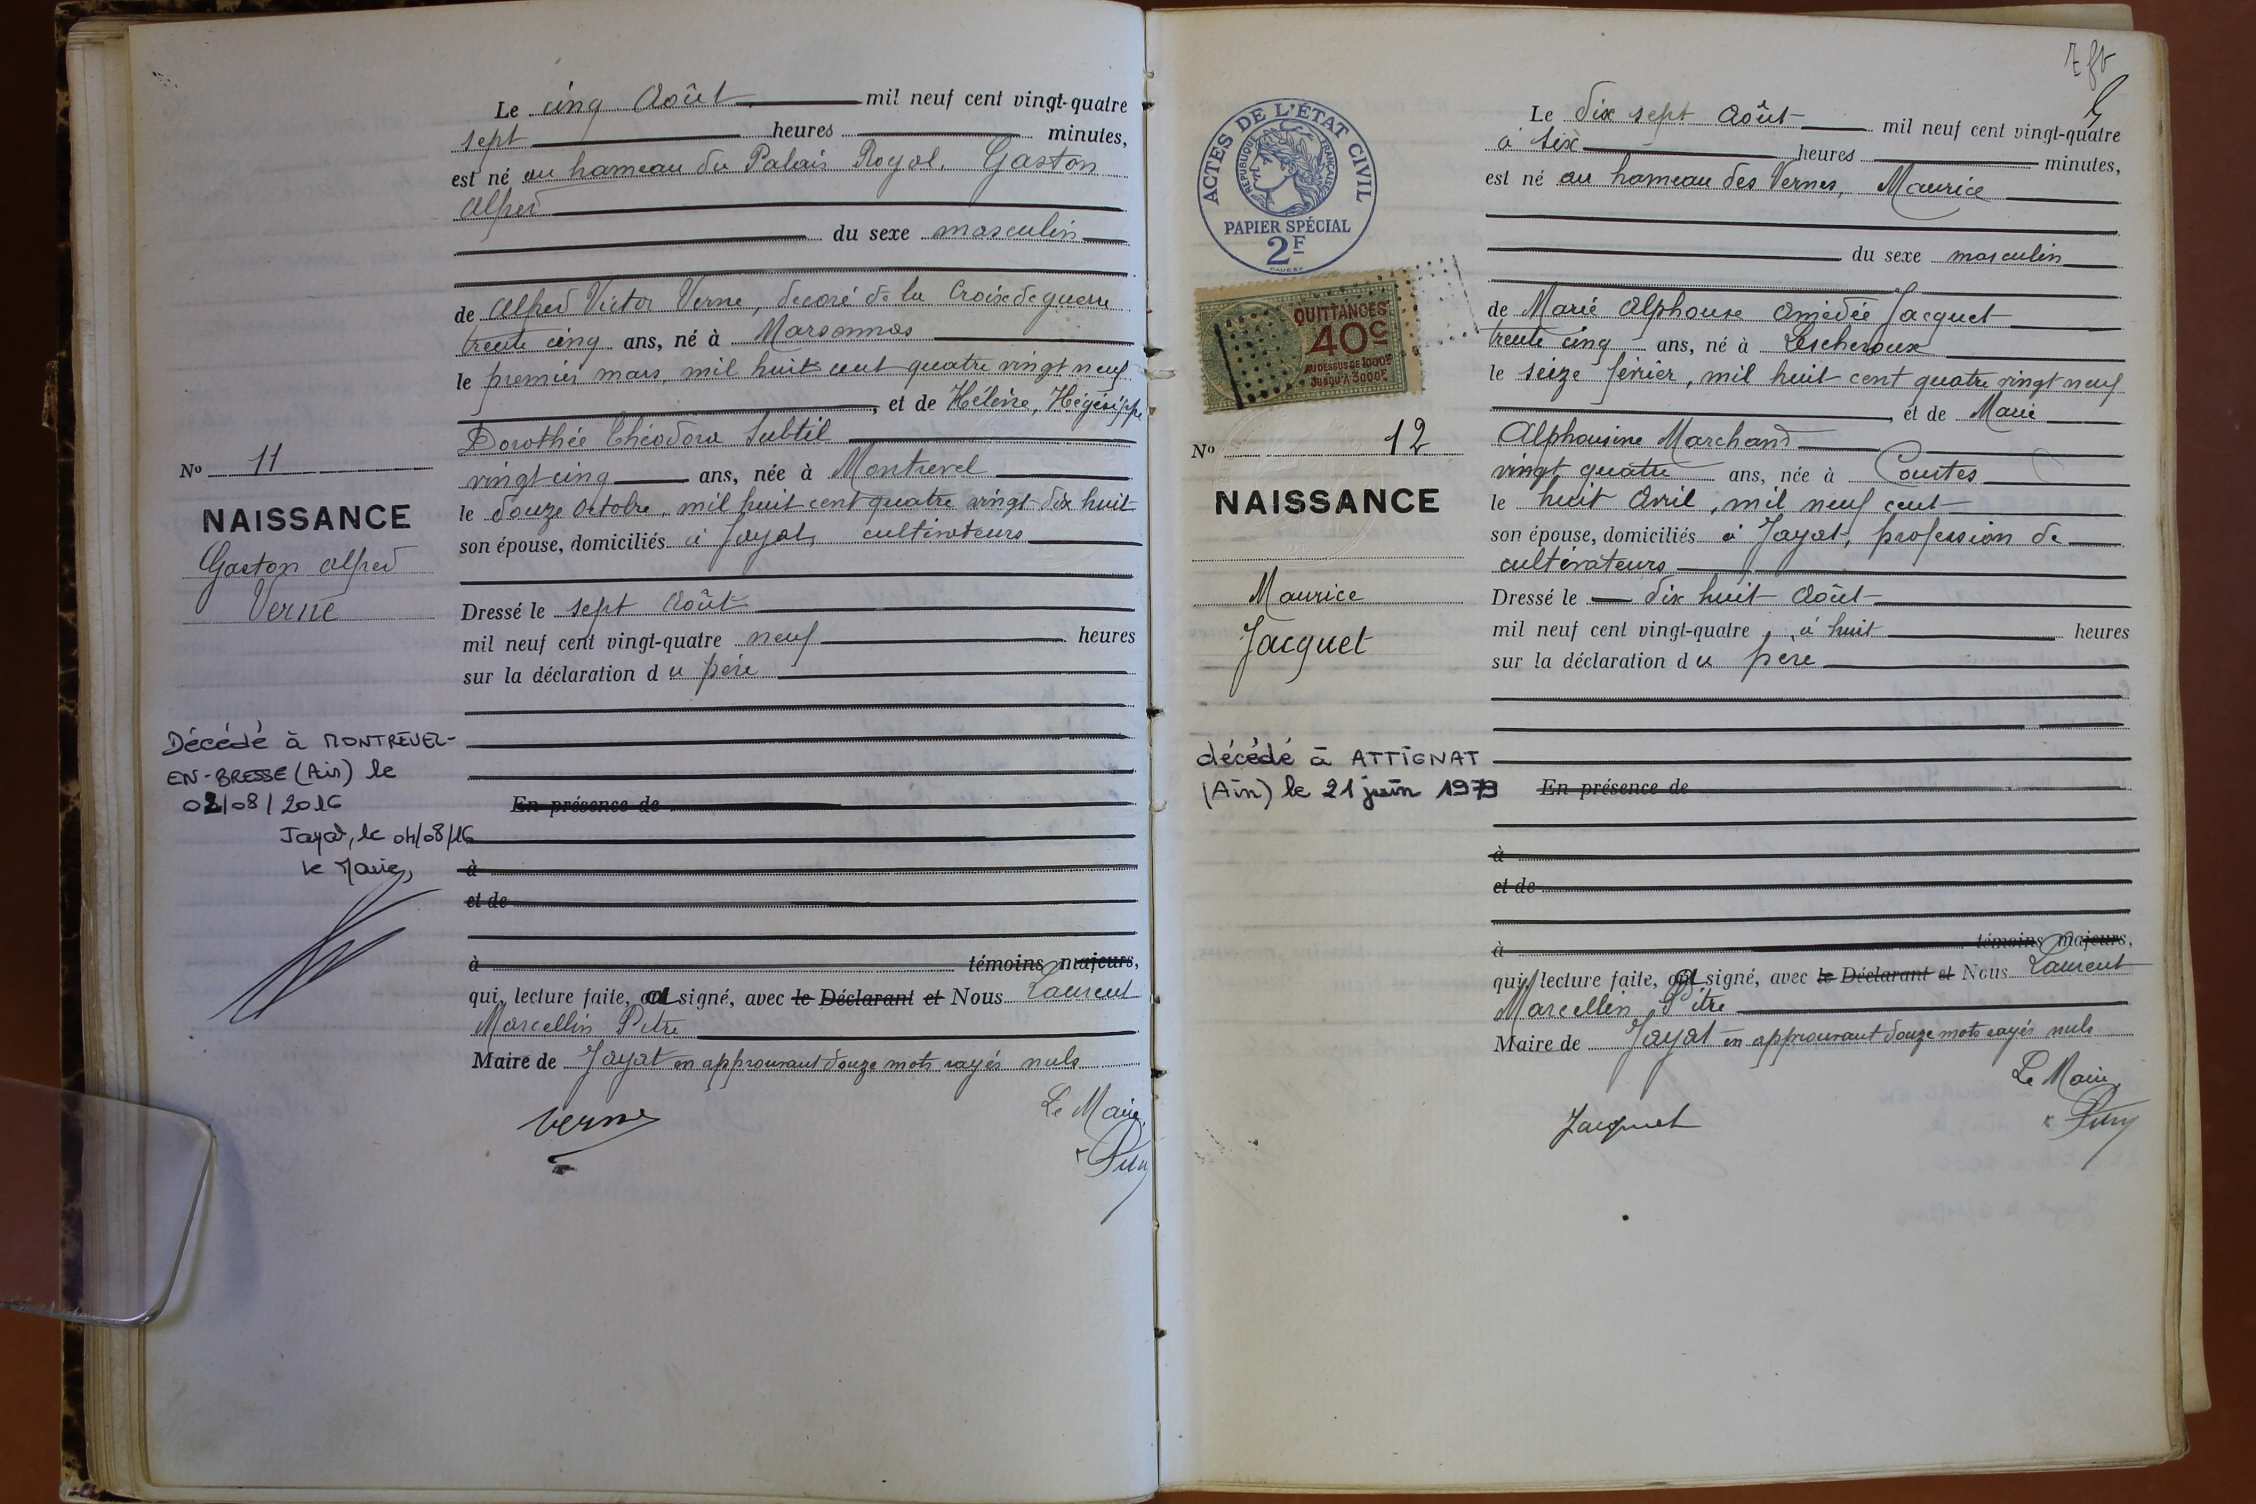 Le cinq Août mil neuf cent vingt-quatre
sept heures minutes,
est né au hameau du Palais Royal, Gaston
Alfred
du sexe masculin
de Alfred Victor Verne, décoré de la Croix de guerre
trente cinq ans, né à Marsonnas
le premier mars, mil huit cent quatre vingt neuf
, et de Hélène, Hégésippe
Dorothée Théodora Subtil
vingt cinq ans, née à Montrevel
le douze octobre, mil huit cent quatre vingt dix huit
son épouse, domiciliés à Jayat, cultivateurs
Dressé le sept Août
mil neuf cent vingt-quatre neuf heures
sur la déclaration du père
En présence de
à
et de
à témoins majeurs,
qui, lecture faite, a signé, avec le Déclarant et Nous Laurent
Marcellin Pitre
Maire de Jayat en approuvant douze mots rayés nuls
Verne
Le Maire
No 11
NAISSANCE
Gaston Alfred
Verne
Décédé à MONTREVEL-
EN-BRESSE (Ain) le
02/08/2016
Jayat, le 04/08/16
le Maire,
ACTES DE L'ÉTAT CIVIL
RÉPUBLIQUE FRANÇAISE
PAPIER SPÉCIAL
2F
QUITTANCES
40c
AU DESSUS DE 1000F
JUSQU'À 3000F
No 12
NAISSANCE
Maurice
Jacquet
décédé à ATTIGNAT
(Ain) le 21 juin 1973
Le dix sept Août mil neuf cent vingt-quatre
à six heures minutes,
est né au hameau des Vernes, Maurice
du sexe masculin
de Marie Alphonse Amédée Jacquet
trente cinq ans, né à Lescheroux
le seize février, mil huit cent quatre vingt neuf
, et de Marie
Alphonsine Marchand
vingt quatre ans, née à Courtes
le huit Avril, mil neuf cent
son épouse, domiciliés à Jayat, profession de
cultivateurs
Dressé le dix huit Août
mil neuf cent vingt-quatre à huit heures
sur la déclaration du père
En présence de
à
et de
à témoins majeurs,
qui, lecture faite, a signé, avec le Déclarant et Nous Laurent
Marcellin Pitre
Maire de Jayat en approuvant douze mots rayés nuls
Jacquet
Le Maire